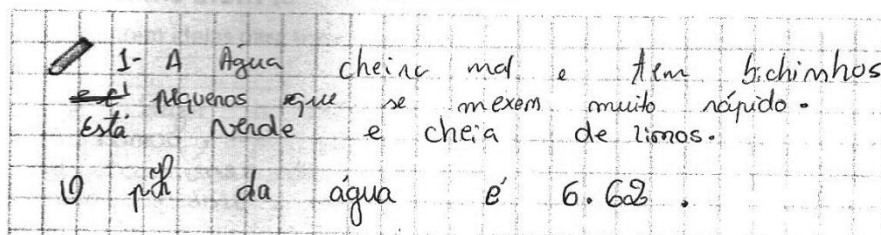 1- A Água cheira mal e tem bichinhos
pequenos que se mexem muito rápido.
Está verde e cheia de limos.
O pH da água é 6.62.